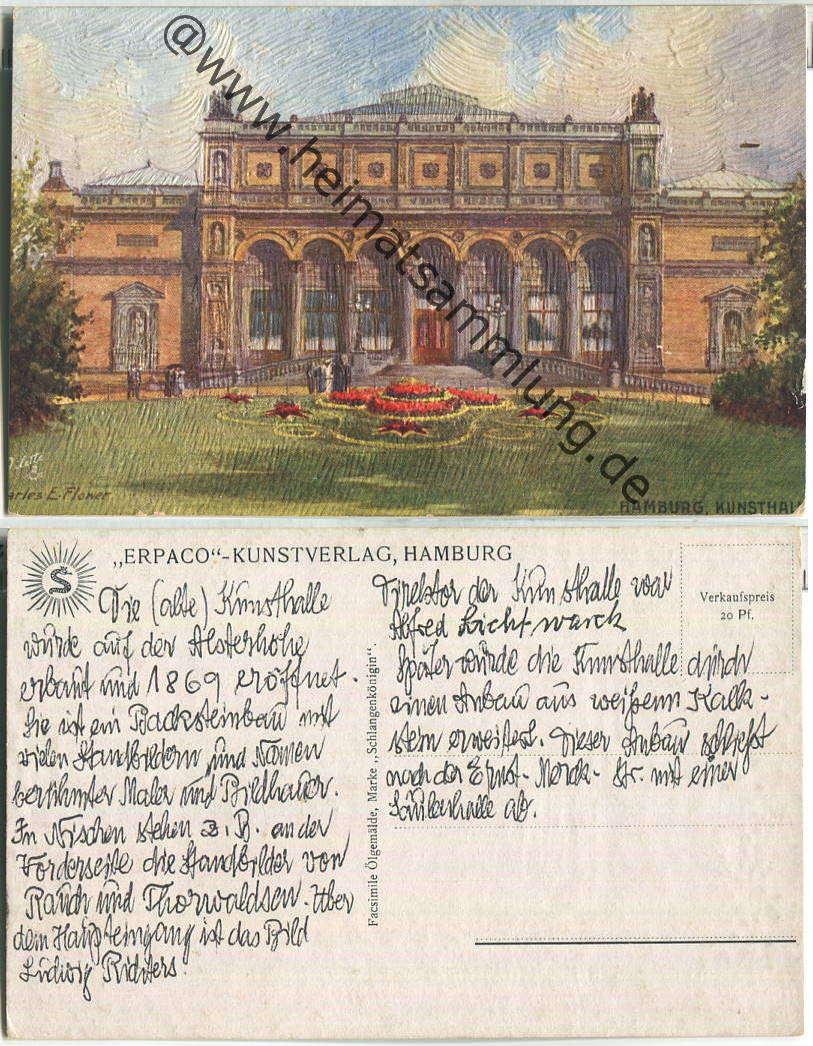 @www.heimatsammlung.de
Charles E. Flower
HAMBURG, KUNSTHAL
„ERPACO“-KUNSTVERLAG, HAMBURG
S
Verkaufspreis
20 Pf.
Die (alte) Kunsthalle
wurde auf der Alsterhöhe
erbaut und 1869 eröffnet.
Sie ist ein Backsteinbau mit
vielen Standbildern und Namen
berühmter Maler und Bildhauer.
In Nischen stehen z. B. an der
Vorderseite die Standbilder von
Rauch und Thorwaldsen. Über
dem Haupteingang ist das Bild
Ludwig Richters.
Facsimile Ölgemälde, Marke „Schlangenkönigin“.
Direktor der Kunsthalle war
Alfred Lichtwarck
Später wurde die Kunsthalle durch
einen Anbau aus weißem Kalk-
stein erweitert. Dieser Anbau schließt
nach der Ernst-Merck-Str. mit einer
Säulenhalle ab.